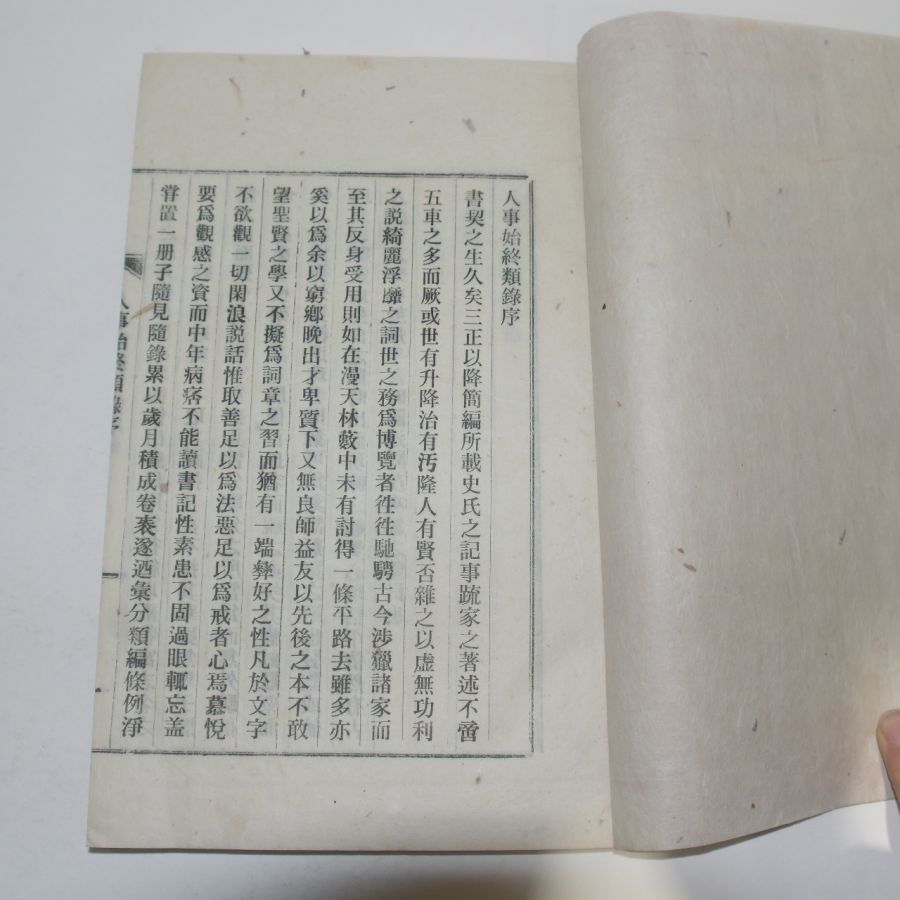 人事始終類錄序
書契之生久矣三正以降簡編所載史氏之記事䟽家之著述不啻
五車之多而厥或世有升降治有汚隆人有賢否雜之以虛無功利
之說綺麗浮靡之詞世之務爲博覽者徃徃馳騁古今涉獵諸家而
至其反身受用則如在漫天林藪中未有討得一條平路去雖多亦
奚以爲余以窮鄉晚出才卑質下又無良師益友以先後之本不敢
望聖賢之學又不擬爲詞章之習而猶有一端彜好之性凡於文字
不欲觀一切閑浪說話惟取善足以爲法惡足以爲戒者心焉慕悅
要爲觀感之資而中年病痞不能讀書記性素患不固過眼輒忘盖
甞置一册子隨見隨錄累以歲月積成卷袠遂迺彙分類編條例淨
人事始終類錄序
一